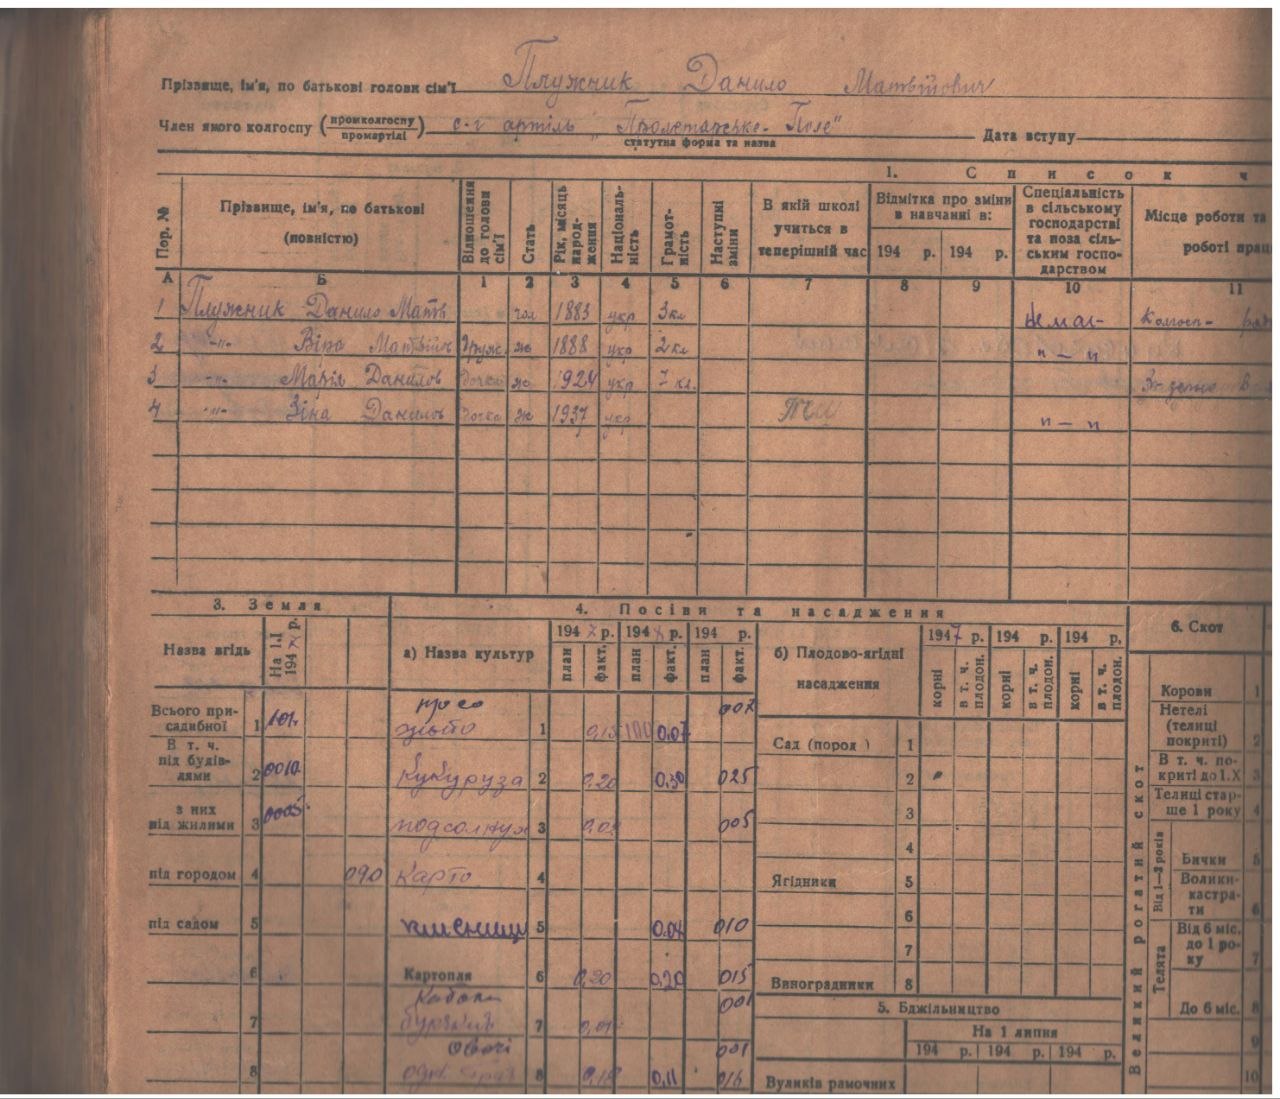 Прізвище, ім'я, по батькові голови сім'ї Плужник Данило Матвійович
Член якого колгоспу (промколгоспу промартілі) с-г артіль „Пролетарське-Поле"
статутна форма та назва
Дата вступу
1. Список ч
Пор. №
Прізвище, ім'я, по батькові (повністю)
Відношення до голови сім'ї
Стать
Рік, місяць народження
Національність
Грамотність
Наступні зміни
В якій школі учиться в теперішній час
Відмітка про зміни в навчанні в:
194 р. 194 р.
Спеціальність в сільському господарстві та поза сільським господарством
Місце роботи та
роботі прац
А Б 1 2 3 4 5 6 7 8 9 10 11
1 Плужник Данило Матв чол 1883 укр 3 кл Немає Колгосп-
2 -"- Матвійов друж. ж 1888 укр 2 кл " — "
3 -"- Марія Данилов дочка ж 1924 укр 7 кл.
4 -"- Зіна Данилов дочка ж 1937 укр " — "
3. Земля
Назва вгідь
На 1.I 194 р.
Всього присадибної 1
В т. ч. під будівлями 2 0010
з них під жилими 3 0005
під городом 4 090
під садом 5
6
7
8
4. Посіви та насадження
а) Назва культур
194 7 р. 194 8 р. 194 р.
план факт. план факт. план факт.
просо 002
жито 1 0,15 100 0.07
кукуруза 2 0,20 0,30 025
подсолнух 3 005
Карто 4
пшениці 5 0.04 010
Картопля 6 0,20 0,20 015
Кабаки 001
7 0,01
Овочі 001
8 0,18 0,11 016
б) Плодово-ягідні насадження
1947 р. 194 р. 194 р.
корні в т. ч. плодон. корні в т. ч. плодон. корні в т. ч. плодон.
Сад (пород ) 1
2
3
4
Ягідники 5
6
7
Виноградники 8
5. Бджільництво
На 1 липня
194 р. 194 р. 194 р.
Вуликів рамочних
6. Скот
Великий рогатий скот
Корови 1
Нетелі (телиці покриті) 2
В т. ч. покриті до 1.X 3
Телиці старше 1 року 4
Від 1—2 років
Бички 5
Волики-кастрати 6
Телята
Від 6 міс. до 1 року 7
До 6 міс. 8
9
10